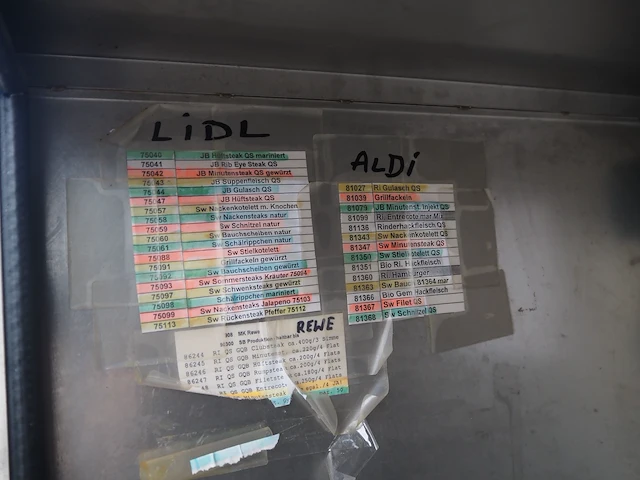 LIDL
75040 JB Hüftsteak QS mariniert
75041 JB Rib Eye Steak QS
75042 JB Minutensteak QS gewürzt
75043 JB Suppenfleisch QS
75044 JB Gulasch QS
75047 JB Hüftsteak QS
75057 Sw Nackenkotelett m. Knochen
75058 Sw Nackensteaks natur
75059 Sw Schnitzel natur
75060 Sw Bauchscheiben natur
75061 Sw Schälrippchen natur
75088 Sw Stielkotelett
75091 Grillfackeln gewürzt
Sw Bauchscheiben gewürzt
75093 Sw Sommersteaks Kräuter 75094
75097 Sw Schwenksteaks gewürzt
75098 Schälrippchen mariniert
75099 Sw Nackensteaks Jalapeno 75103
75113 Sw Rückensteak Pfeffer 75112
ALDi
81027 Ri Gulasch QS
81039 Grillfackeln
81079 JB Minutenst. Injekt QS
81099 Ri. Entrecote mar
81136 Rinderhackfleisch QS
81343 Sw Nackenkotelett QS
81347 Sw Minutensteak QS
81350 Sw Stielkotelett QS
81351 Bio Ri. Hackfleisch
81360 Ri. Hamburger
81363 Sw Bau 81364 mar
81366 Bio Gem Hackfleisch
81367 Sw Filet QS
81368 Sw Schnitzel QS
REWE
MK Rewe
SB Produktion
86244 RI QS GQB Clubsteak ca.400g/3
86245 RI QS GQB Minutenst ca.220g/4 Flats
86246 RI QS GQB Hüftsteak ca.200g/4 Flats
86247 RI QS GQB Rumpsteak ca.200g/4 Flats
RI QS GQB Filetste ca.180g/4 Flats
RI QS GQB Entrecote ca.250g/4 Flats